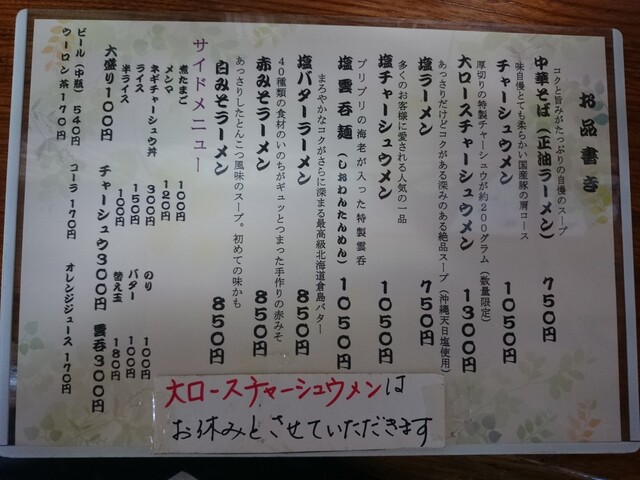 お品書き
コクと旨みがたっぷりの自慢のスープ
中華そば（正油ラーメン） 750円
味自慢とても柔らかい国産豚の肩ロース
チャーシュウメン 1050円
厚切りの特製チャーシュウが約200グラム（数量限定）
大ロースチャーシュウメン 1300円
あっさりだけどコクがある深みのある絶品スープ（沖縄天日塩使用）
塩ラーメン 750円
多くのお客様に愛される人気の一品
塩チャーシュウメン 1050円
プリプリの海老が入った特製雲呑
塩雲呑麺（しおわんたんめん） 1050円
まろやかなコクがさらに深まる最高級北海道倉島バター
塩バターラーメン 850円
40種類の食材のいのちがギュッとつまった手作りの赤みそ
赤みそラーメン 850円
あっさりしたとんこつ風味のスープ。初めての味かも
白みそラーメン 850円
サイドメニュー
煮たまご 100円
メンマ 120円
ネギチャーシュウ丼 300円
ライス 150円
半ライス 100円
のり 100円
バター 100円
替え玉 180円
大盛り100円 チャーシュウ300円 雲呑300円
ビール（中瓶）540円 コーラ170円 オレンジジュース170円
ウーロン茶170円
大ロースチャーシュウメンは
お休みとさせていただきます